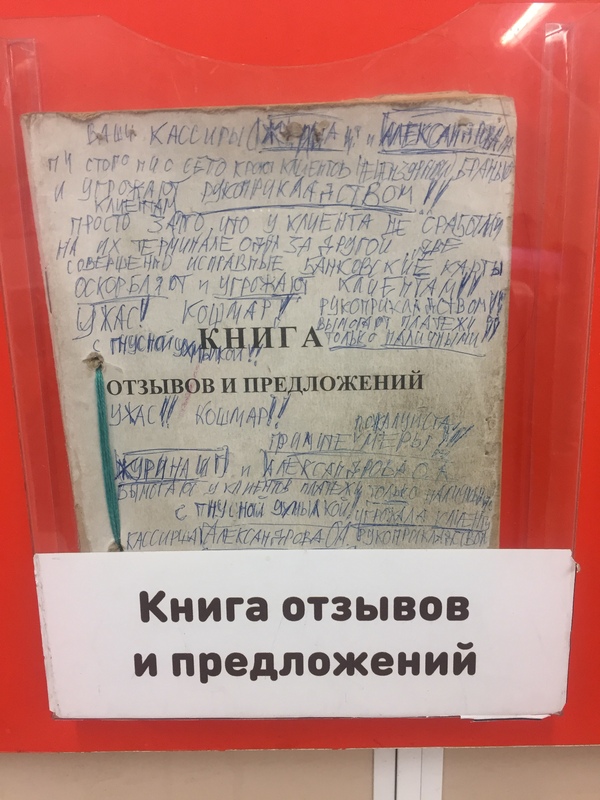 ВАШИ КАССИРЫ ЖУРИНА И АЛЕКСАНДРОВА
КЛИЕНТОВ НЕЦЕНЗУРНОЙ БРАНЬЮ
И УГРОЖАЮТ РУКОПРИКЛАДСТВОМ!!
КЛИЕНТАМ
ПРОСТО ЗАТО, ЧТО У КЛИЕНТА НЕ СРАБОТАЛИ
НА ИХ ТЕРМИНАЛЕ ОДНА ЗА ДРУГОЙ ДВЕ
СОВЕРШЕННО ИСПРАВНЫЕ БАНКОВСКИЕ КАРТЫ
ОСКОРБЛЯЮТ И УГРОЖАЮТ КЛИЕНТАМ!!
УЖАС!! КОШМАР!! РУКОПРИКЛАДСТВОМ!!
ВЫМОГАЮТ ПЛАТЕЖИ
С ГНУСНОЙ УХМЫЛКОЙ!! ТОЛЬКО НАЛИЧНЫМИ!!
КНИГА
ОТЗЫВОВ И ПРЕДЛОЖЕНИЙ
УЖАС!!! КОШМАР!!
ПОЖАЛУЙСТА,
ПРИМИТЕ МЕРЫ!!!
ЖУРИНА И П И АЛЕКСАНДРОВА О.А.
ВЫМОГАЮТ У КЛИЕНТОВ ПЛАТЕЖИ ТОЛЬКО НАЛИЧНЫМИ
С ГНУСНОЙ УХМЫЛКОЙ УГРОЖАЛА
КАССИРША АЛЕКСАНДРОВА ОА РУКОПРИКЛАДСТВОМ
Книга отзывов
и предложений